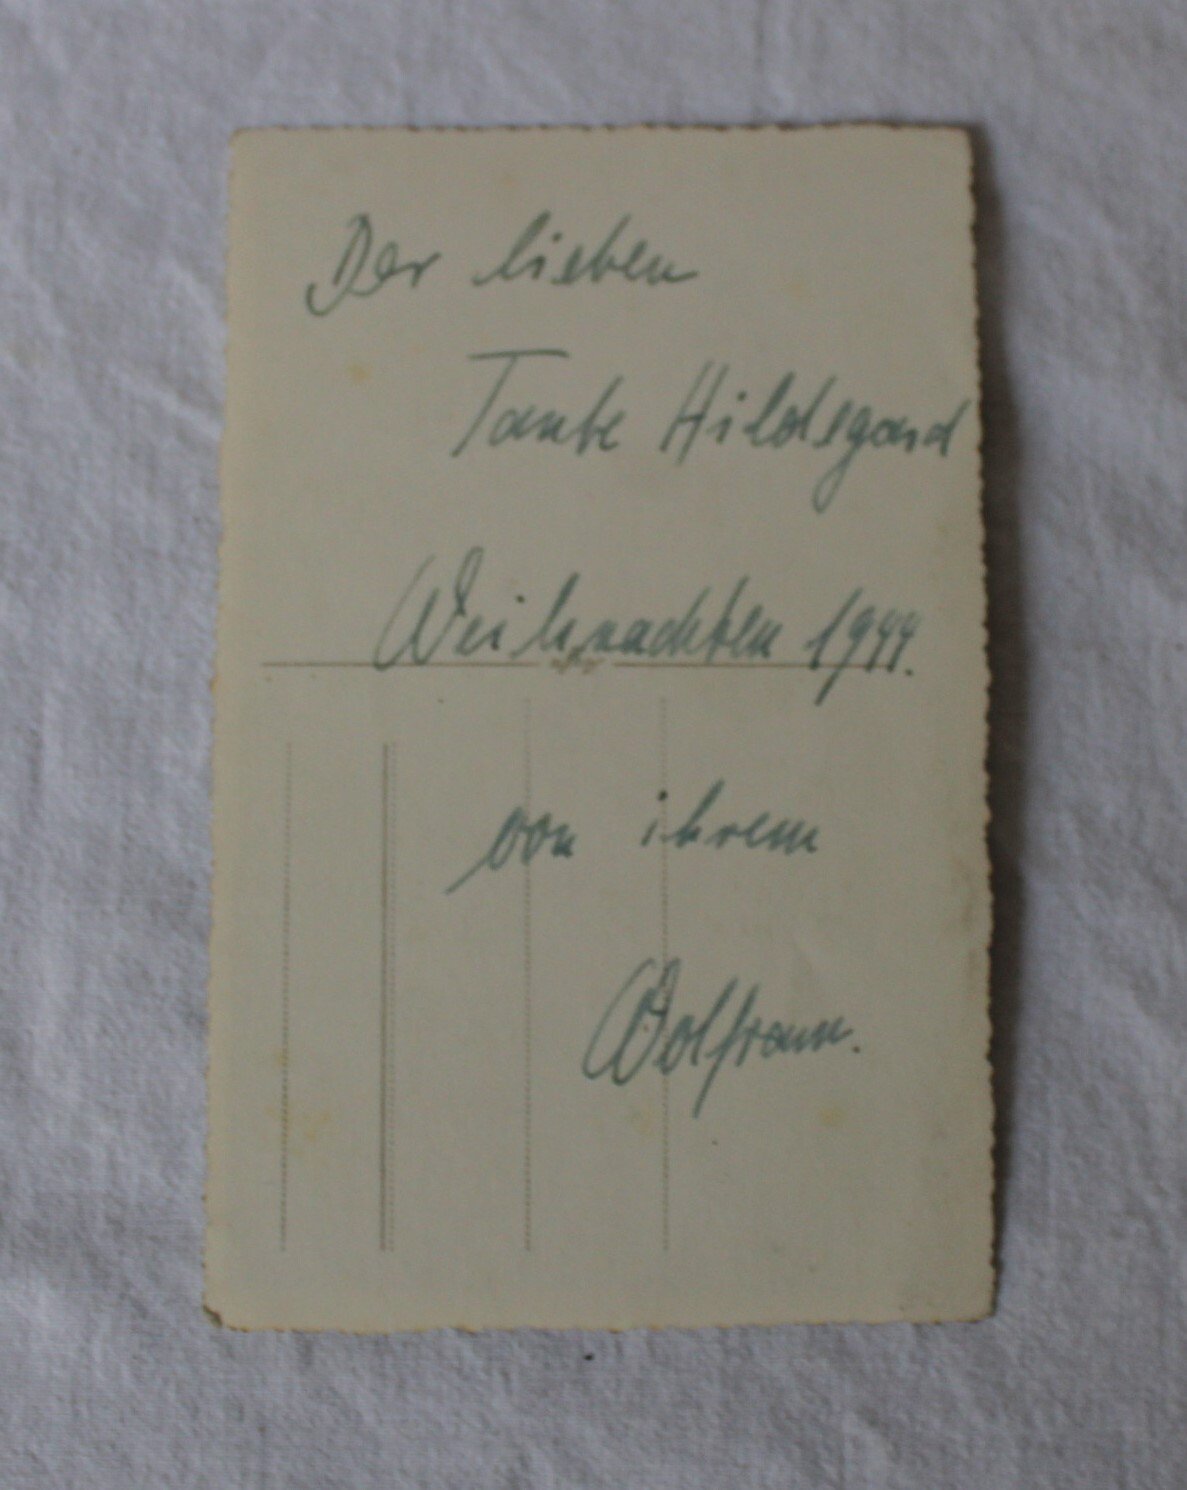 Der lieben
Tante Hildegard
Weihnachten 1944.
von ihrem
Wolfram.